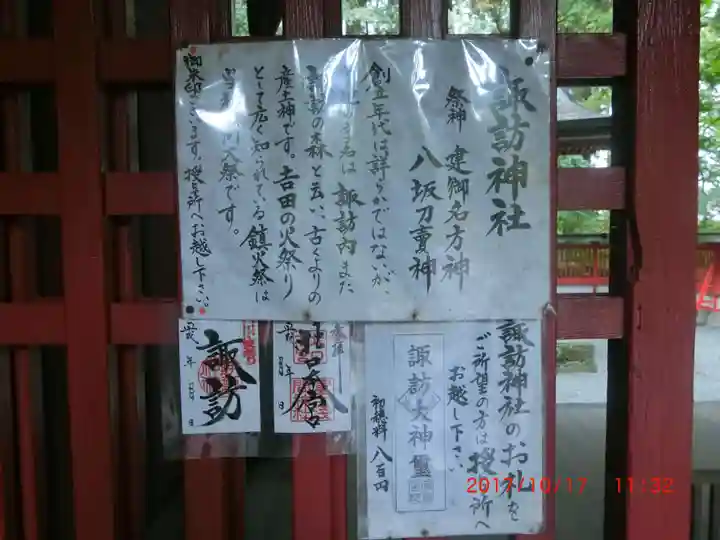 諏訪神社
祭神 建御名方神
八坂刀賣神
創立年代は詳らかではないが、
は 諏訪内 また
諏訪の森と云い、古くよりの
産土神です。吉田の火祭り
として広く知られている鎮火祭は
祭です。
御朱印ございます。授与所へお越し下さい。
諏訪神社のお札を
ご希望の方は授与所へ
お越し下さい
諏訪大神璽
初穂料 八百円
諏訪
年 月 日
年 月 日
2017/10/17 11:32